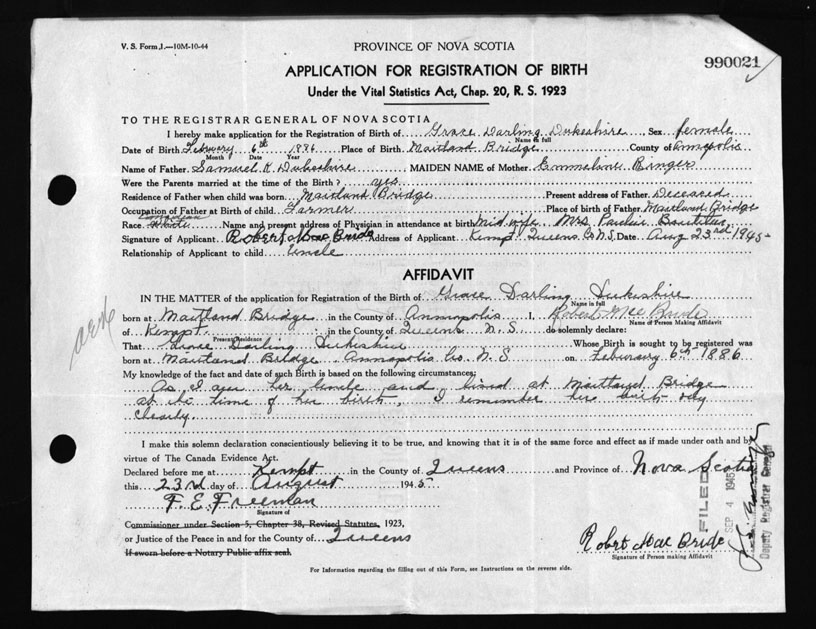 V. S. Form 1.—10M-10-44
PROVINCE OF NOVA SCOTIA
990021
APPLICATION FOR REGISTRATION OF BIRTH
Under the Vital Statistics Act, Chap. 20, R. S. 1923
TO THE REGISTRAR GENERAL OF NOVA SCOTIA
I hereby make application for the Registration of Birth of Grace Darling Dukeshire Sex female
Name in full
Date of Birth February 6th 1886 Place of Birth Maitland Bridge County of Annapolis
Month Date Year
Name of Father Samuel K Dukeshire MAIDEN NAME of Mother Emmeline Ringer
Were the Parents married at the time of the Birth? yes
Residence of Father when child was born Maitland Bridge Present address of Father Deceased
Occupation of Father at Birth of child Farmer Place of birth of Father Maitland Bridge
Race White Name and present address of Physician in attendance at birth Mid wife Mrs
Signature of Applicant Robert Mac Bride Address of Applicant Kempt Queens Co N.S. Date Aug 23rd 1945
Relationship of Applicant to child Uncle
AFFIDAVIT
IN THE MATTER of the application for Registration of the Birth of Grace Darling Dukeshire
Name in full
born at Maitland Bridge in the County of Annapolis I, Robert Mac Bride
Name of Person Making Affidavit
of Kempt in the County of Queens N. S. do solemnely declare:
Present Residence
That Grace Darling Dukeshire Whose Birth is sought to be registered was
born at Maitland Bridge Annapolis Co N. S on February 6th 1886
My knowledge of the fact and date of such Birth is based on the following circumstances:
As I am her Uncle and lived at Maitland Bridge
at the time of her birth, I remember her birth day
clearly.
I make this solemn declaration conscientiously believing it to be true, and knowing that it is of the same force and effect as if made under oath and by
virtue of The Canada Evidence Act.
Declared before me at Kempt in the County of Queens and Province of Nova Scotia
this 23rd day of August 1945
F. E. Freeman
Signature of
Commissioner under Section 5, Chapter 38, Revised Statutes, 1923,
or Justice of the Peace in and for the County of Queens
If sworn before a Notary Public affix seal.
Robert Mac Bride
Signature of Person making Affidavit
FILED
SEP 4 1945
Deputy Registrar General
For Information regarding the filling out of this Form, see Instructions on the reverse side.